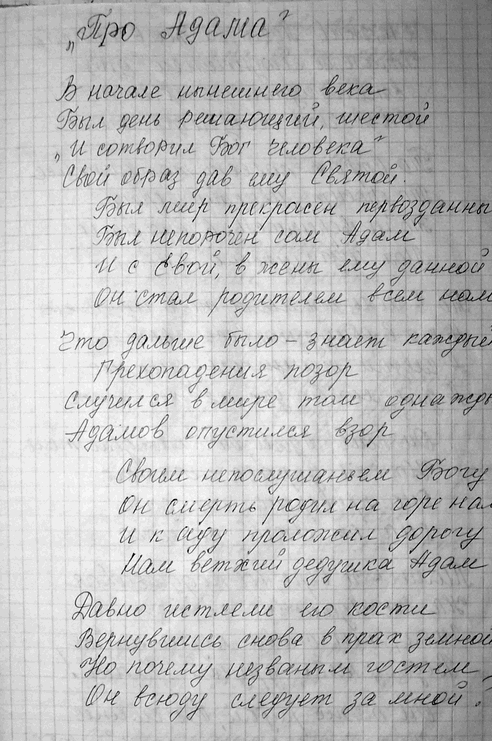 „Про Адама"
В начале нынешнего века
Был день решающий, шестой
„И сотворил Бог человека"
Свой образ дав ему Святой.
Был мир прекрасен первозданны
Был непорочен сам Адам
И с Евой, в жены ему данной
Он стал родителем всем нам
Что дальше было – знает каждый
Грехопадения позор
Случился в мире том однажды
Адамов опустился взор
Своим непослушаньем Богу
Он смерть родил на горе нам
И к аду проложил дорогу
Нам ветхий дедушка Адам
Давно истлели его кости
Вернувшись снова в прах земной
Но почему незваным гостем
Он всюду следует за мной?